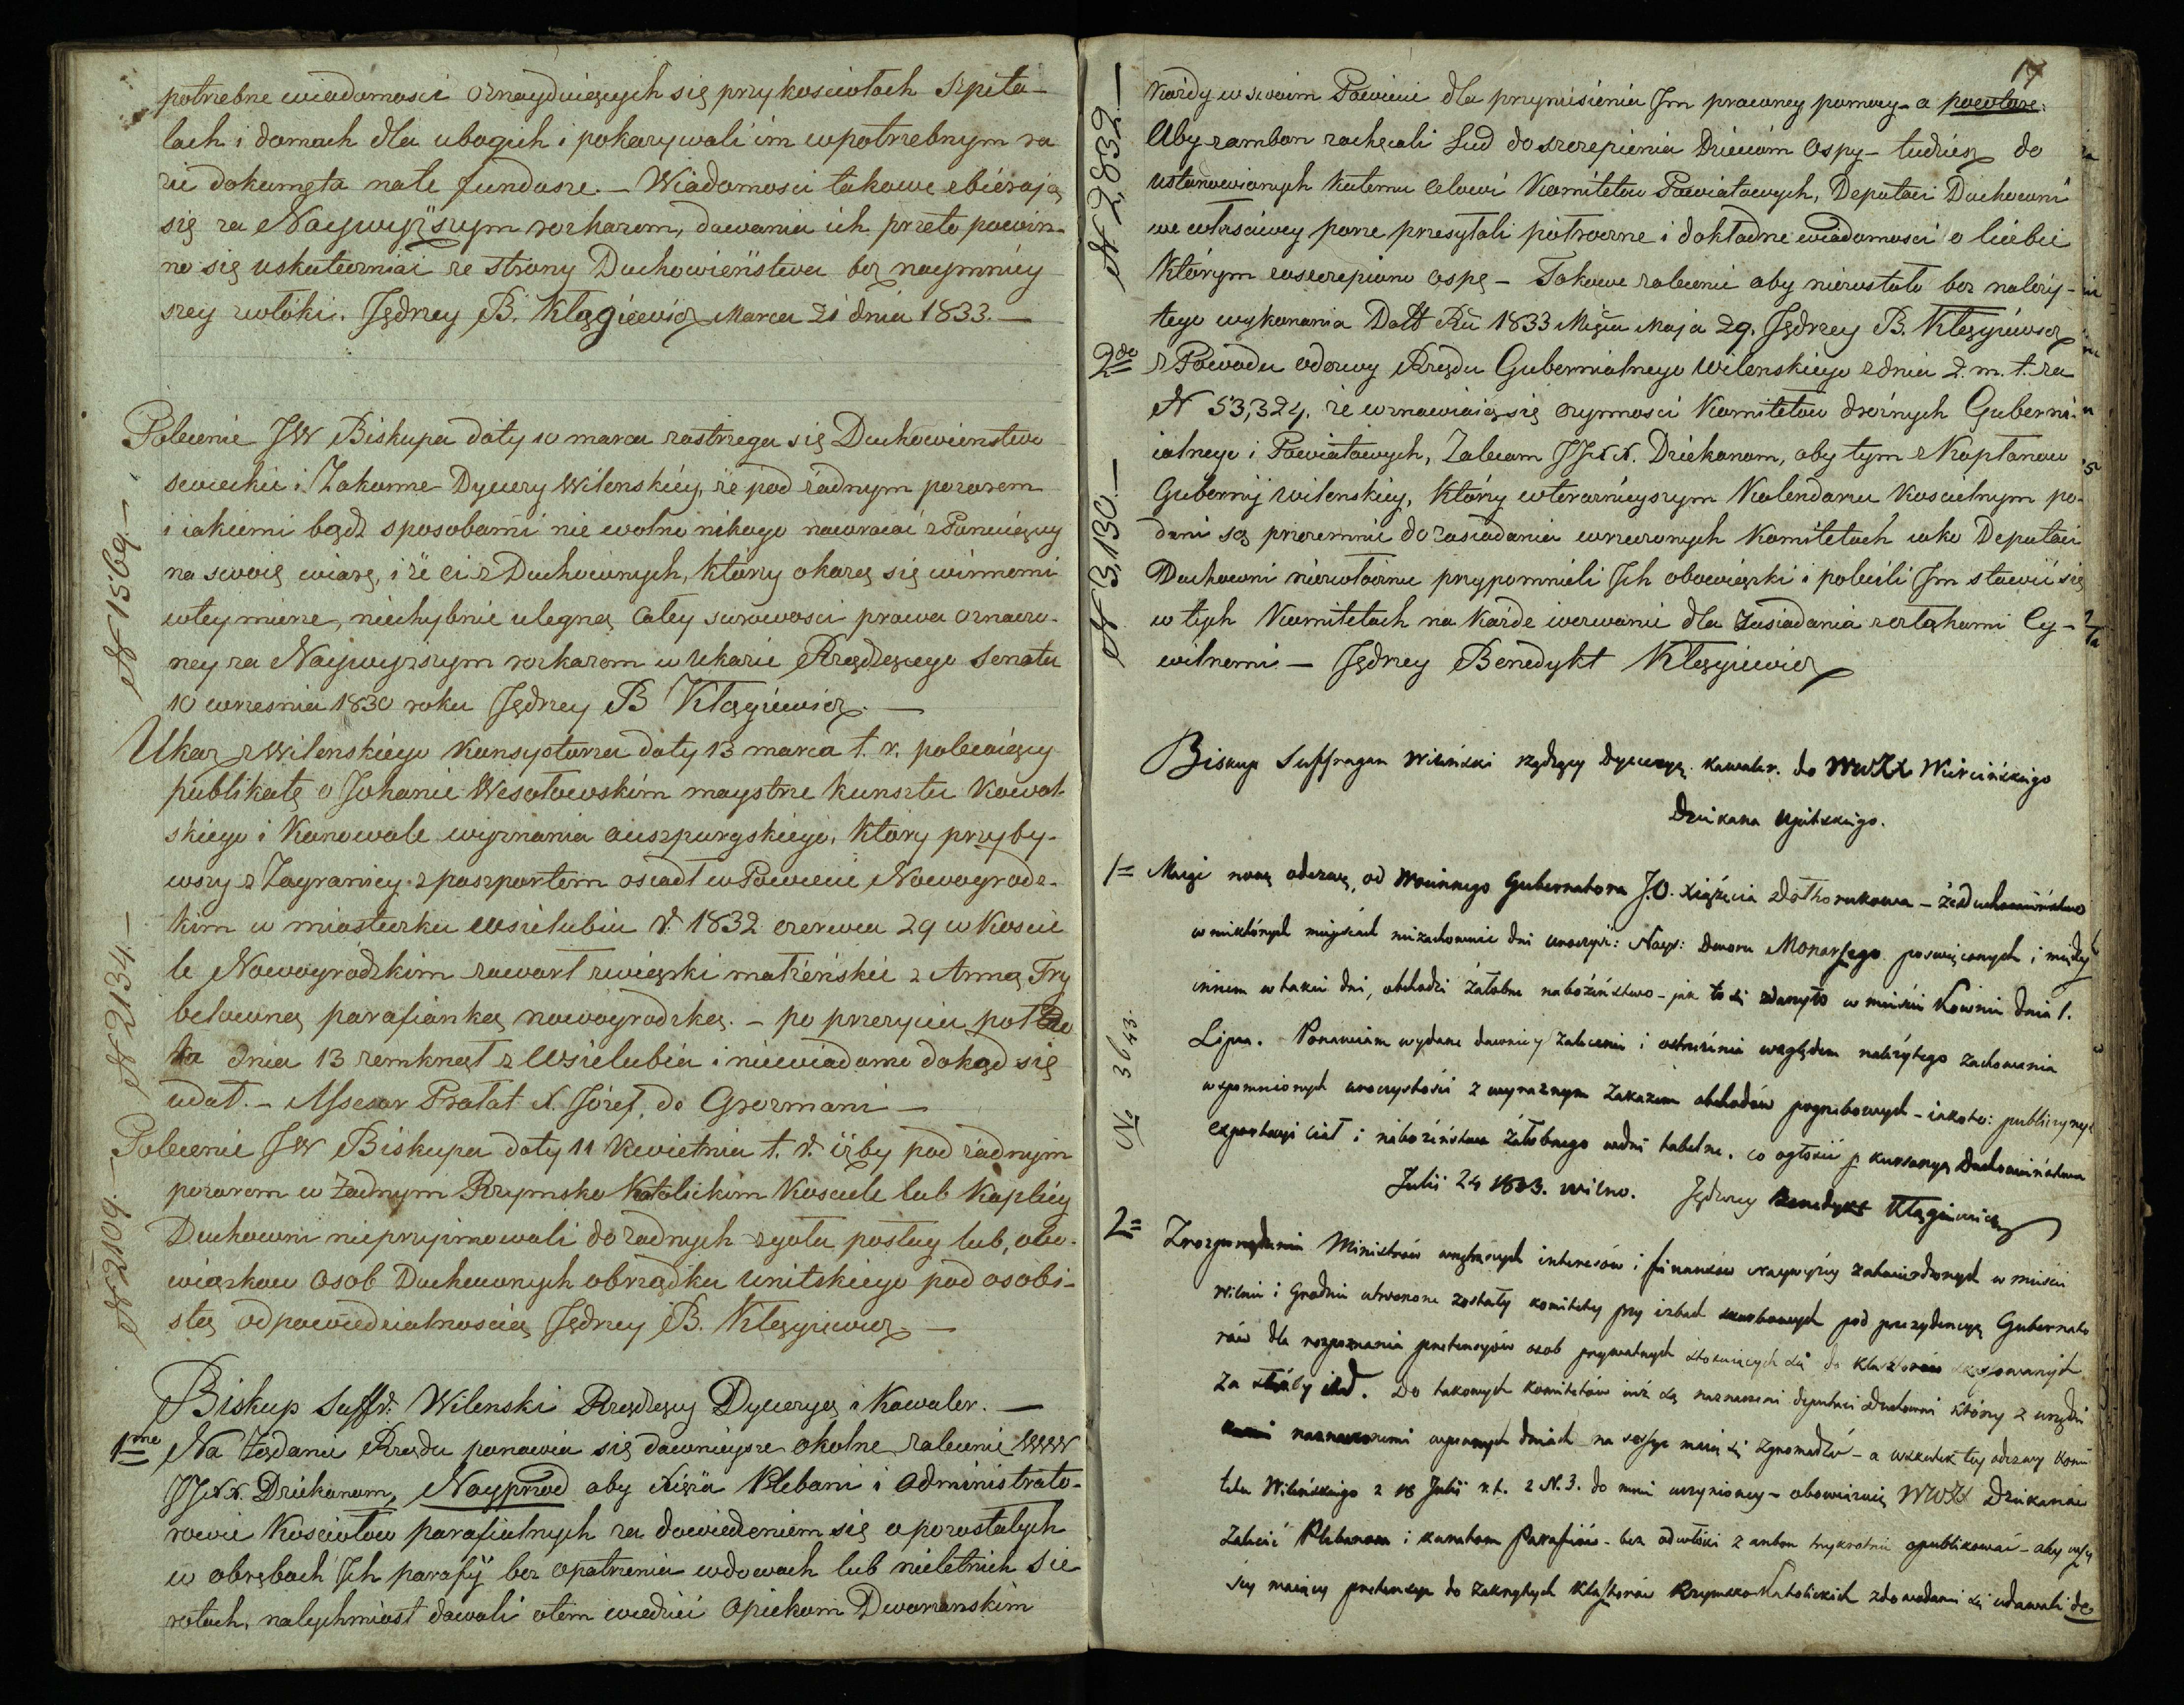 potrzebne wiadomosci oznayduiących się przy kosciołach Szpita-
lach i domach dla ubogich i pokazywali im wpotrzebnym ra
zie dokumęta nate fundusze. — Wiadomosci takowe zbierają
się za Naywyższym rozkazem, dawania ich przeto powin-
no się uskuteczniać ze strony Duchowieństwa bez naymniey
szey zwłoki. Jędrzey B. Kłągiewicz Marca 21 dnia 1833. —
Polecenie JW Biskupa daty 10 marca zastrzega się Duchowienstwo
swieckie i Zakonne Dyecezy Wilenskiey, że pod żadnym pozorem
i iakiemi bądz sposobami nie wolno nikogo nawracać z Panuiącey
na swoię wiarę, i że ci z Duchownych, którzy okażą się winnemi
wtey mierze, niechybnie ulegną całey surowosci prawa oznaczo-
ney za Naywyższym rozkazem w ukazie Rządzącego Senatu
10 wrzesnia 1830 roku Jędrzey B Kłągiewicz. —
N 1569. —
Ukaz z Wilenskiego Konsystorza daty 13 marca t. r. polecaiący
publikatę o Johanie Wesołowskim maystrze kunsztu Kowal-
skiego i Konowale wyznania auszpurgskiego, który przyby-
wszy z Zagranicy z paszportem osiadł w Powiecie Nowogrodz-
kim w miasteczku Wsielubiu r. 1832 czerwca 29 w Koscie
le Nowogródzkim zawarł związki małżeńskie z Anną Try
belowną parafianką nowogrodzką. — po przeżyciu pół Ro
ku dnia 13 zemknął z Wsielubia i niewiadomo dokąd się
udał. — Assesor Prałat X. Józef, de Grozmani —
N 2134. —
Polecenie JW Biskupa daty 11 Kwietnia t. r. iżby pod żadnym
pozorem w żadnym Rzymsko Katolickim Kosciele lub Kaplicy
Duchowni nieprzyimowali do żadnych zgoła posług lub, obo-
wiązkow Osob Duchownych obrządku Unitskiego pod osobi-
stą odpowiedzialnoscią Jędrzey B. Kłągiewicz. —
N 2109. —
Biskup Suffr: Wilenski Rządzący Dyecezyą i Kawaler. —
1me Na Żądanie Rządu ponawia się dawnieysze okolne zalecenie WWW
JJXX. Dziekanom, Nayprzod aby Xięża Plebani i Administrato-
rowie Kosciołow parafialnych za dowiedzeniem się o pozostałych
w obrębach Ich parafij bez opatrzenia wdowach lub nieletnich sie
rotach, natychmiast dawali otem wiedzieć Opiekom Dworzanskim
17
każdy w swoim Powiecie dla przyniesienia Im prawney pomocy – a powtóre:
Aby z ambon zachęcali Lud do szczepienia Dzieciom Ospy – tudzież do
ustanowionych ku temu celowi Komitetow Powiatowych, Deputaci Duchowni
we własciwey porze przesyłali półroczne i dokładne wiadomosci o liczbie
Którym zaszczepiono ospę – Takowe zalecenie aby niezostało bez należy-
tego wykonania Datt Ru 1833 Mięsca Maja 29. Jędrzey B. Kłągiewicz
N 2,832. —
2do z Powodu odezwy Rządu Gubernialnego Wilenskiego z dnia 2. m. t. za
N 53,324. że wznawiaią się czynnosci Komitetow drożnych Guberni-
ialnego i Powiatowych, Zalecam JJXX. Dziekanom, aby tym z Kapłanow
Gubernij Wilenskiey, którzy w teraznieyszym Kalendarzu Koscielnym po-
dani są przezemnie do zasiadania w rzeczonych Komitetach iako Deputaci
Duchowni niezwłocznie przypomnieli Ich obowiązki i polecili Im stawić się
w tych Komitetach na każde wezwanie dla zasiadania z członkami Cy-
wilnemi. — Jędrzey Benedykt Kłągiewicz
N 3,130. —
Biskup Suffragan Wileński rządzący dyecezyą kawaler. do WWXX Wiercińskiego
Dziekana Upitskiego.
1= Maiąc nową odezwę, od Woiennego Gubernatora J.O. Xiążęcia Dołhorukowa – że Duchowieństwo
w niektórych mieyscach niezachowuie dni uroczyś: Nays: Dworu Monarszego poswięconych i między
innem w takie dni, obchodzi żałobne nabożeństwo – jak to się zdarzyło w mieście Kownie dnia 1.
Lipca. Ponawiam wydane dawniey zalecenia i ostrzeżenia względem należytego zachowania
wspomnionych uroczystości z wyraznym zakazem obchodów pogrzebowych – iakoto: publicznych
exportacyi ciał i nabożeństwa żałobnego w dni tabelne. co ogłosić p. kursoryą Duchowieństwu
Julii 24 1833. Wilno. Jędrzey Benedykt Kłągiewicz
No 3643.
2= Z rozporządzenia Ministrów wnętrznych interesów i finansów Naywyżey zatwierdzonych w mieście
Wilnie i Grodnie utworzone zostały komitety przy izbach skarbowych pod prezydencyą Gubernato
rów dla rozpoznania pretensyów osob prywatnych stosuiących się do klasztorów skassowanych
Za Do takowych komitetów już są naznaczeni deputaci Duchowni którzy z urzędni
kami naznaczonemi w pewnych dniach na sessye maią się zgromadzać – a wskutek tey odezwy komi
tetu Wileńskiego z 18 Julii r.t. z N. 3. do mnie uczynioney – obowiązuię WWXX Dziekanów
Zalecić Plebanom i kuratom Parafiów – bez odwłoki z ambon trzykrotnie opublikować – aby wszy
scy maiący pretensye do zakrytych Klasztorów Rzymsko-Katolickich z dowodami się udawali do